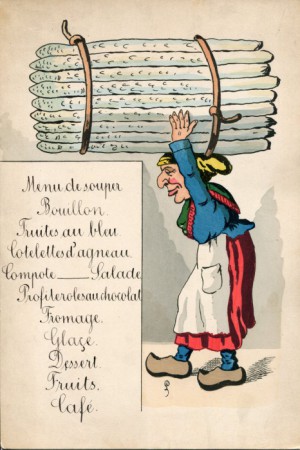 Menu de souper
Bouillon.
Truites au bleu
Cotelettes d'agneau
Compote ___ Salade
Profiteroles au chocolat
Fromage.
Glaçe.
Dessert.
Fruits.
Café.